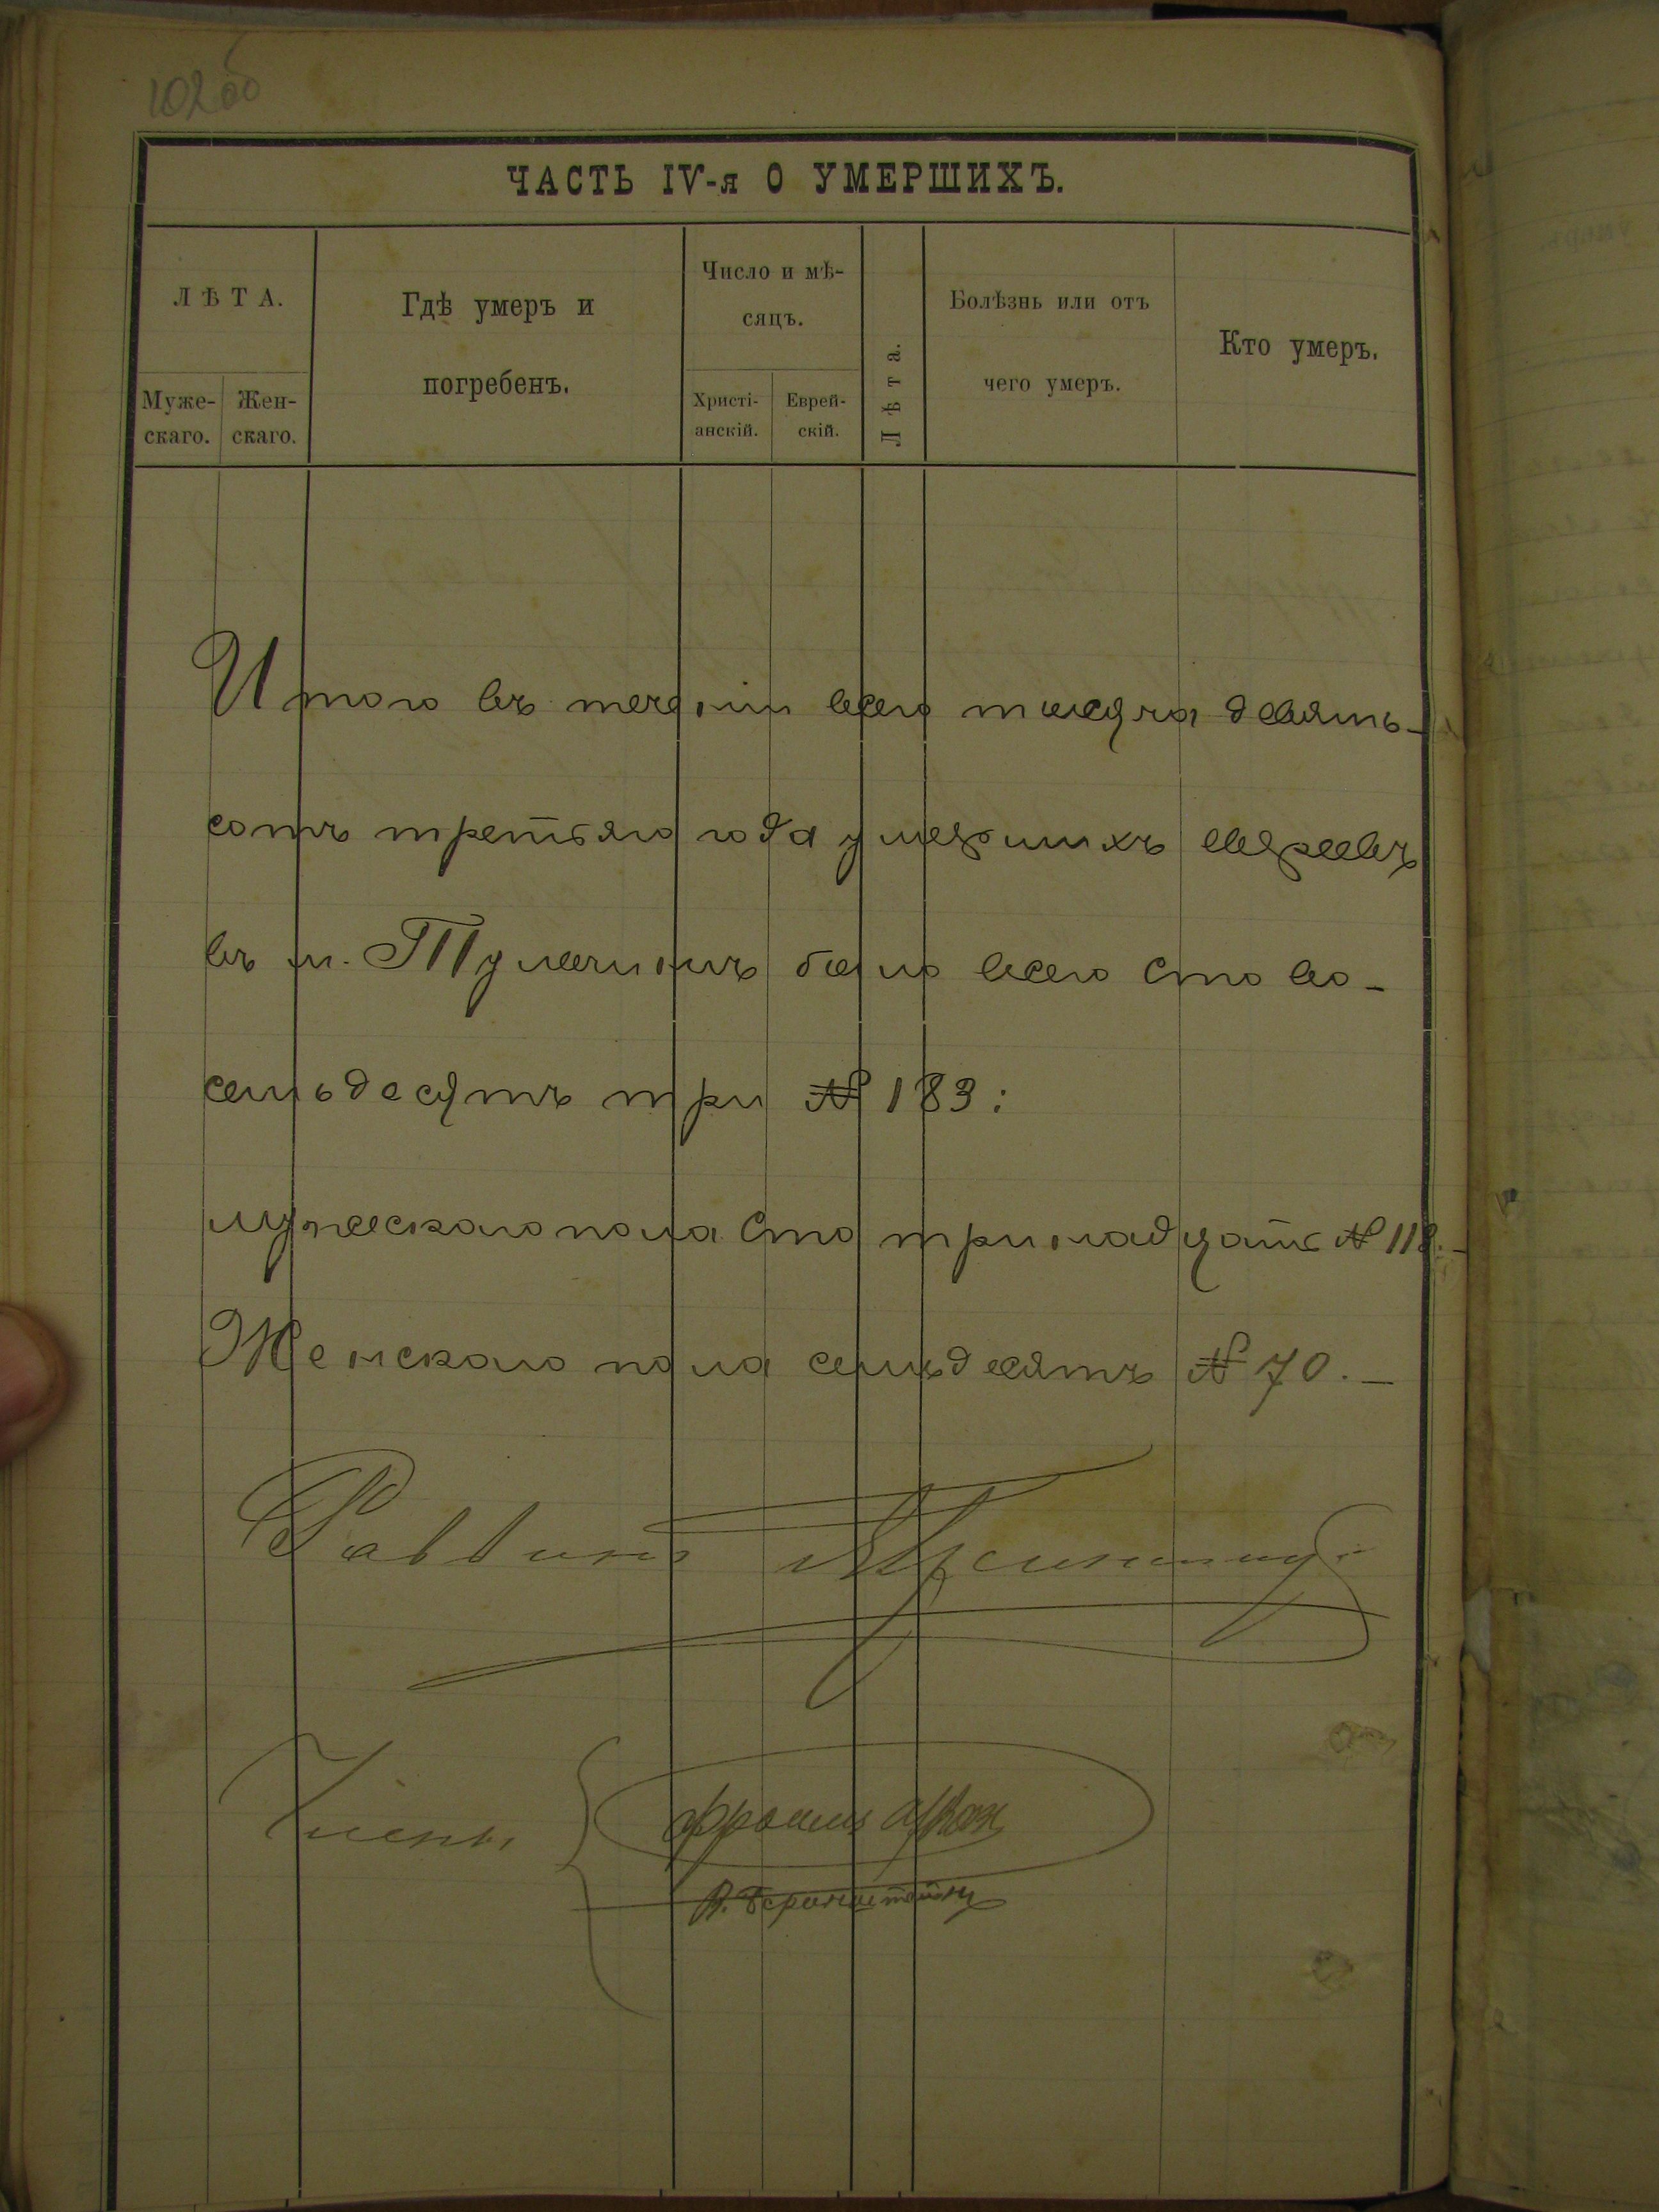 102об
ЧАСТЬ IV-я О УМЕРШИХЪ.
ЛѢТА.
Мужескаго.
Женскаго.
Гдѣ умеръ и
погребенъ.
Число и мѣ-
сяцъ.
Христі-
анскій.
Еврей-
скій.
Лѣта.
Болѣзнь или отъ
чего умеръ.
Кто умеръ.
Итого въ теченіи всего тысяча девять-
сотъ третьяго года умершихъ евреевъ
въ м. Тульчинѣ было всего сто во-
семьдесятъ три № 183:
мужескаго пола сто тринадцать № 113.-
Женскаго пола семьдесятъ № 70.-
Раввинъ
Члены
В. Бернштейнъ